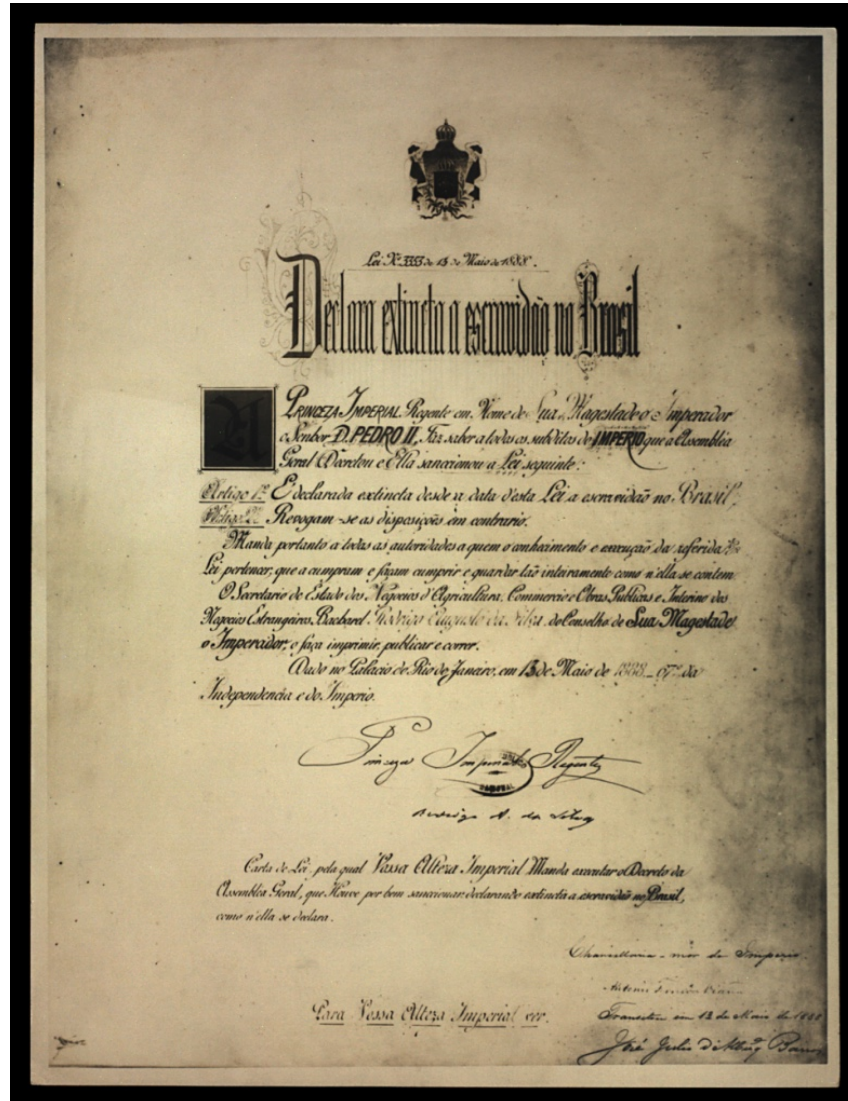 Lei Nº 3353 de 13 de Maio de 1888.
Declara extincta a escravidão no Brasil
A PRINCEZA IMPERIAL Regente em Nome de Sua Magestade o Imperador
o Senhor D. PEDRO II, Faz saber a todos os subditos do IMPERIO que a Assembléa
Geral Decretou e Ella sanccionou a Lei seguinte:
Artigo 1º É declarada extincta desde a data d'esta Lei a escravidão no Brasil.
Artigo 2º Revogam-se as disposições em contrario.
Manda portanto a todas as autoridades a quem o conhecimento e execução da referida
Lei pertencer, que a cumpram e façam cumprir e guardar tão inteiramente como n'ella se contem
O Secretario de Estado dos Negocios d'Agricultura, Commercio e Obras Publicas e Interino dos
Negocios Estrangeiros, Bacharel Rodrigo Augusto da Silva do Conselho de Sua Magestade
o Imperador, o faça imprimir, publicar e correr.
Dado no Palacio do Rio de Janeiro, em 13 de Maio de 1888 67º da
Independencia e do Imperio.
Princeza Imperial Regente
Rodrigo A. da Silva
Carta de Lei, pela qual Vossa Alteza Imperial Manda executar o Decreto da
Assembléa Geral, que Houve por bem sanccionar, declarando extincta a escravidão no Brasil,
como n'ella se declara.
Chancellaria-mór do Imperio.
Antonio Ferreira Vianna
Para Vossa Alteza Imperial ver.
Transitou em 13 de Maio de 1888
José Julio de Albuq Barros